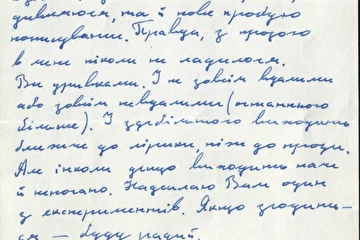 дивлюся, та й нове пробую
пописувати. Правда, з прозою
в мене ніколи не ладилося.
Все уривками. І не зовсім вдалими
або зовсім невдалими (останнього
більше). І здебільшого виходить
ближче до лірики, ніж до прози.
Але інколи дещо виходить наче
й непогано. Надсилаю Вам один
з експериментів. Якщо згодить-
ся — буду радий.